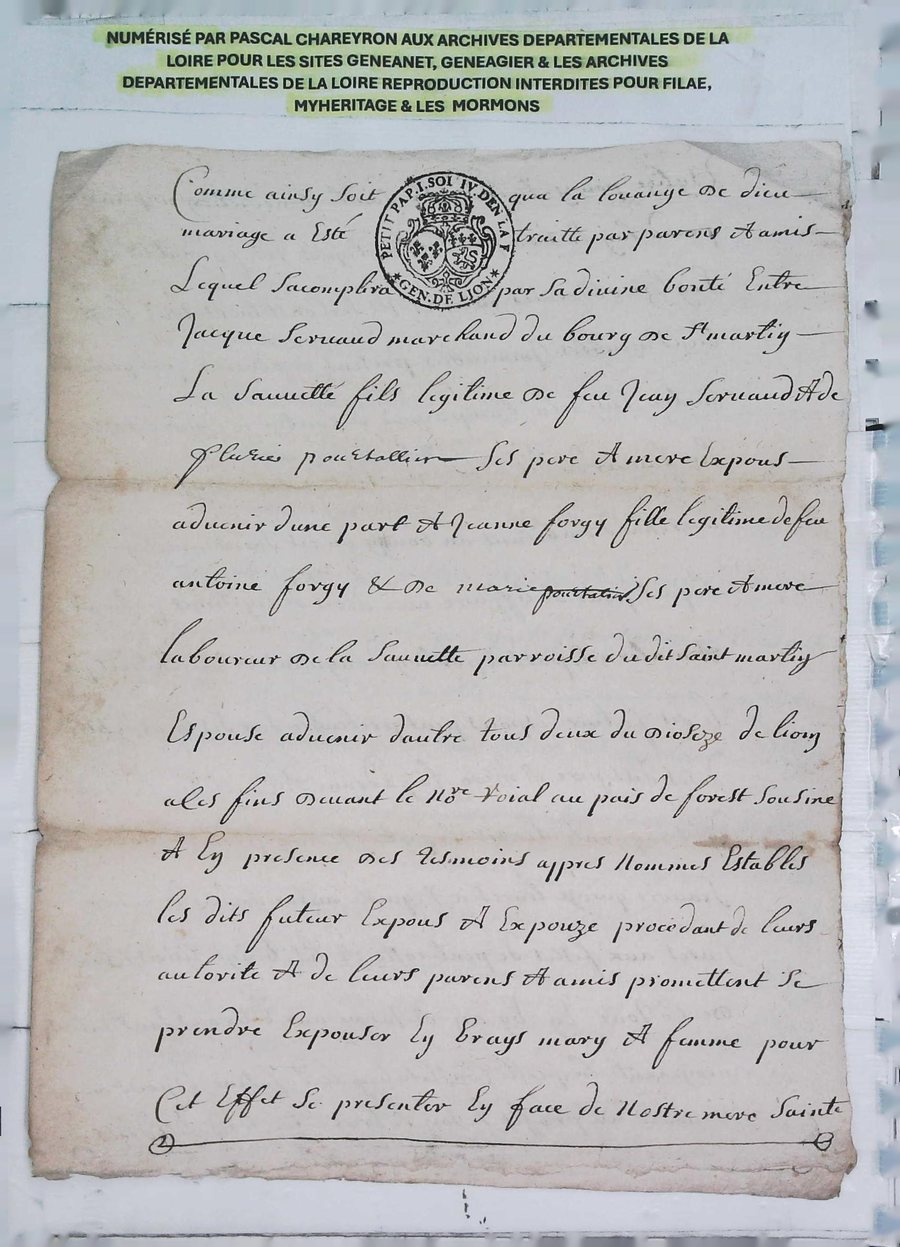 NUMÉRISÉ PAR PASCAL CHAREYRON AUX ARCHIVES DEPARTEMENTALES DE LA
LOIRE POUR LES SITES GENEANET, GENEAGIER & LES ARCHIVES
DEPARTEMENTALES DE LA LOIRE REPRODUCTION INTERDITES POUR FILAE,
MYHERITAGE & LES MORMONS
PETIT PAP. I. SOI IV. DEN LA F
GEN. DE LION
Comme ainsy soit qua la louange de dieu
mariage a Esté traitte par parens & amis
Lequel Sacomplira par Sa divine bonté Entre
Jacque Servaud marchand du bourg de St martin
La Sauvetté fils legitime de feu Jean Servaud & de
pourtallier Ses pere & mere Expous
advenir dune part & Jeanne forgy fille legitime de feu
antoine forgy & de marie Ses pere & mere
laboureur de la Sauvette parroisse du dit Saint martin
Espouse advenir dautre tous deux du dioseze de lion
a les fins devant le Nore Roial au pais de forest Sousine
& En presence des tesmoins appres Nommes Establis
les dits futeur Expous & Expouze procedant de leurs
autorite & de leurs parens & amis promettent se
prendre Expouser En brays mary & femme pour
Cet Effet Se presenter En face de Nostre mere Sainte